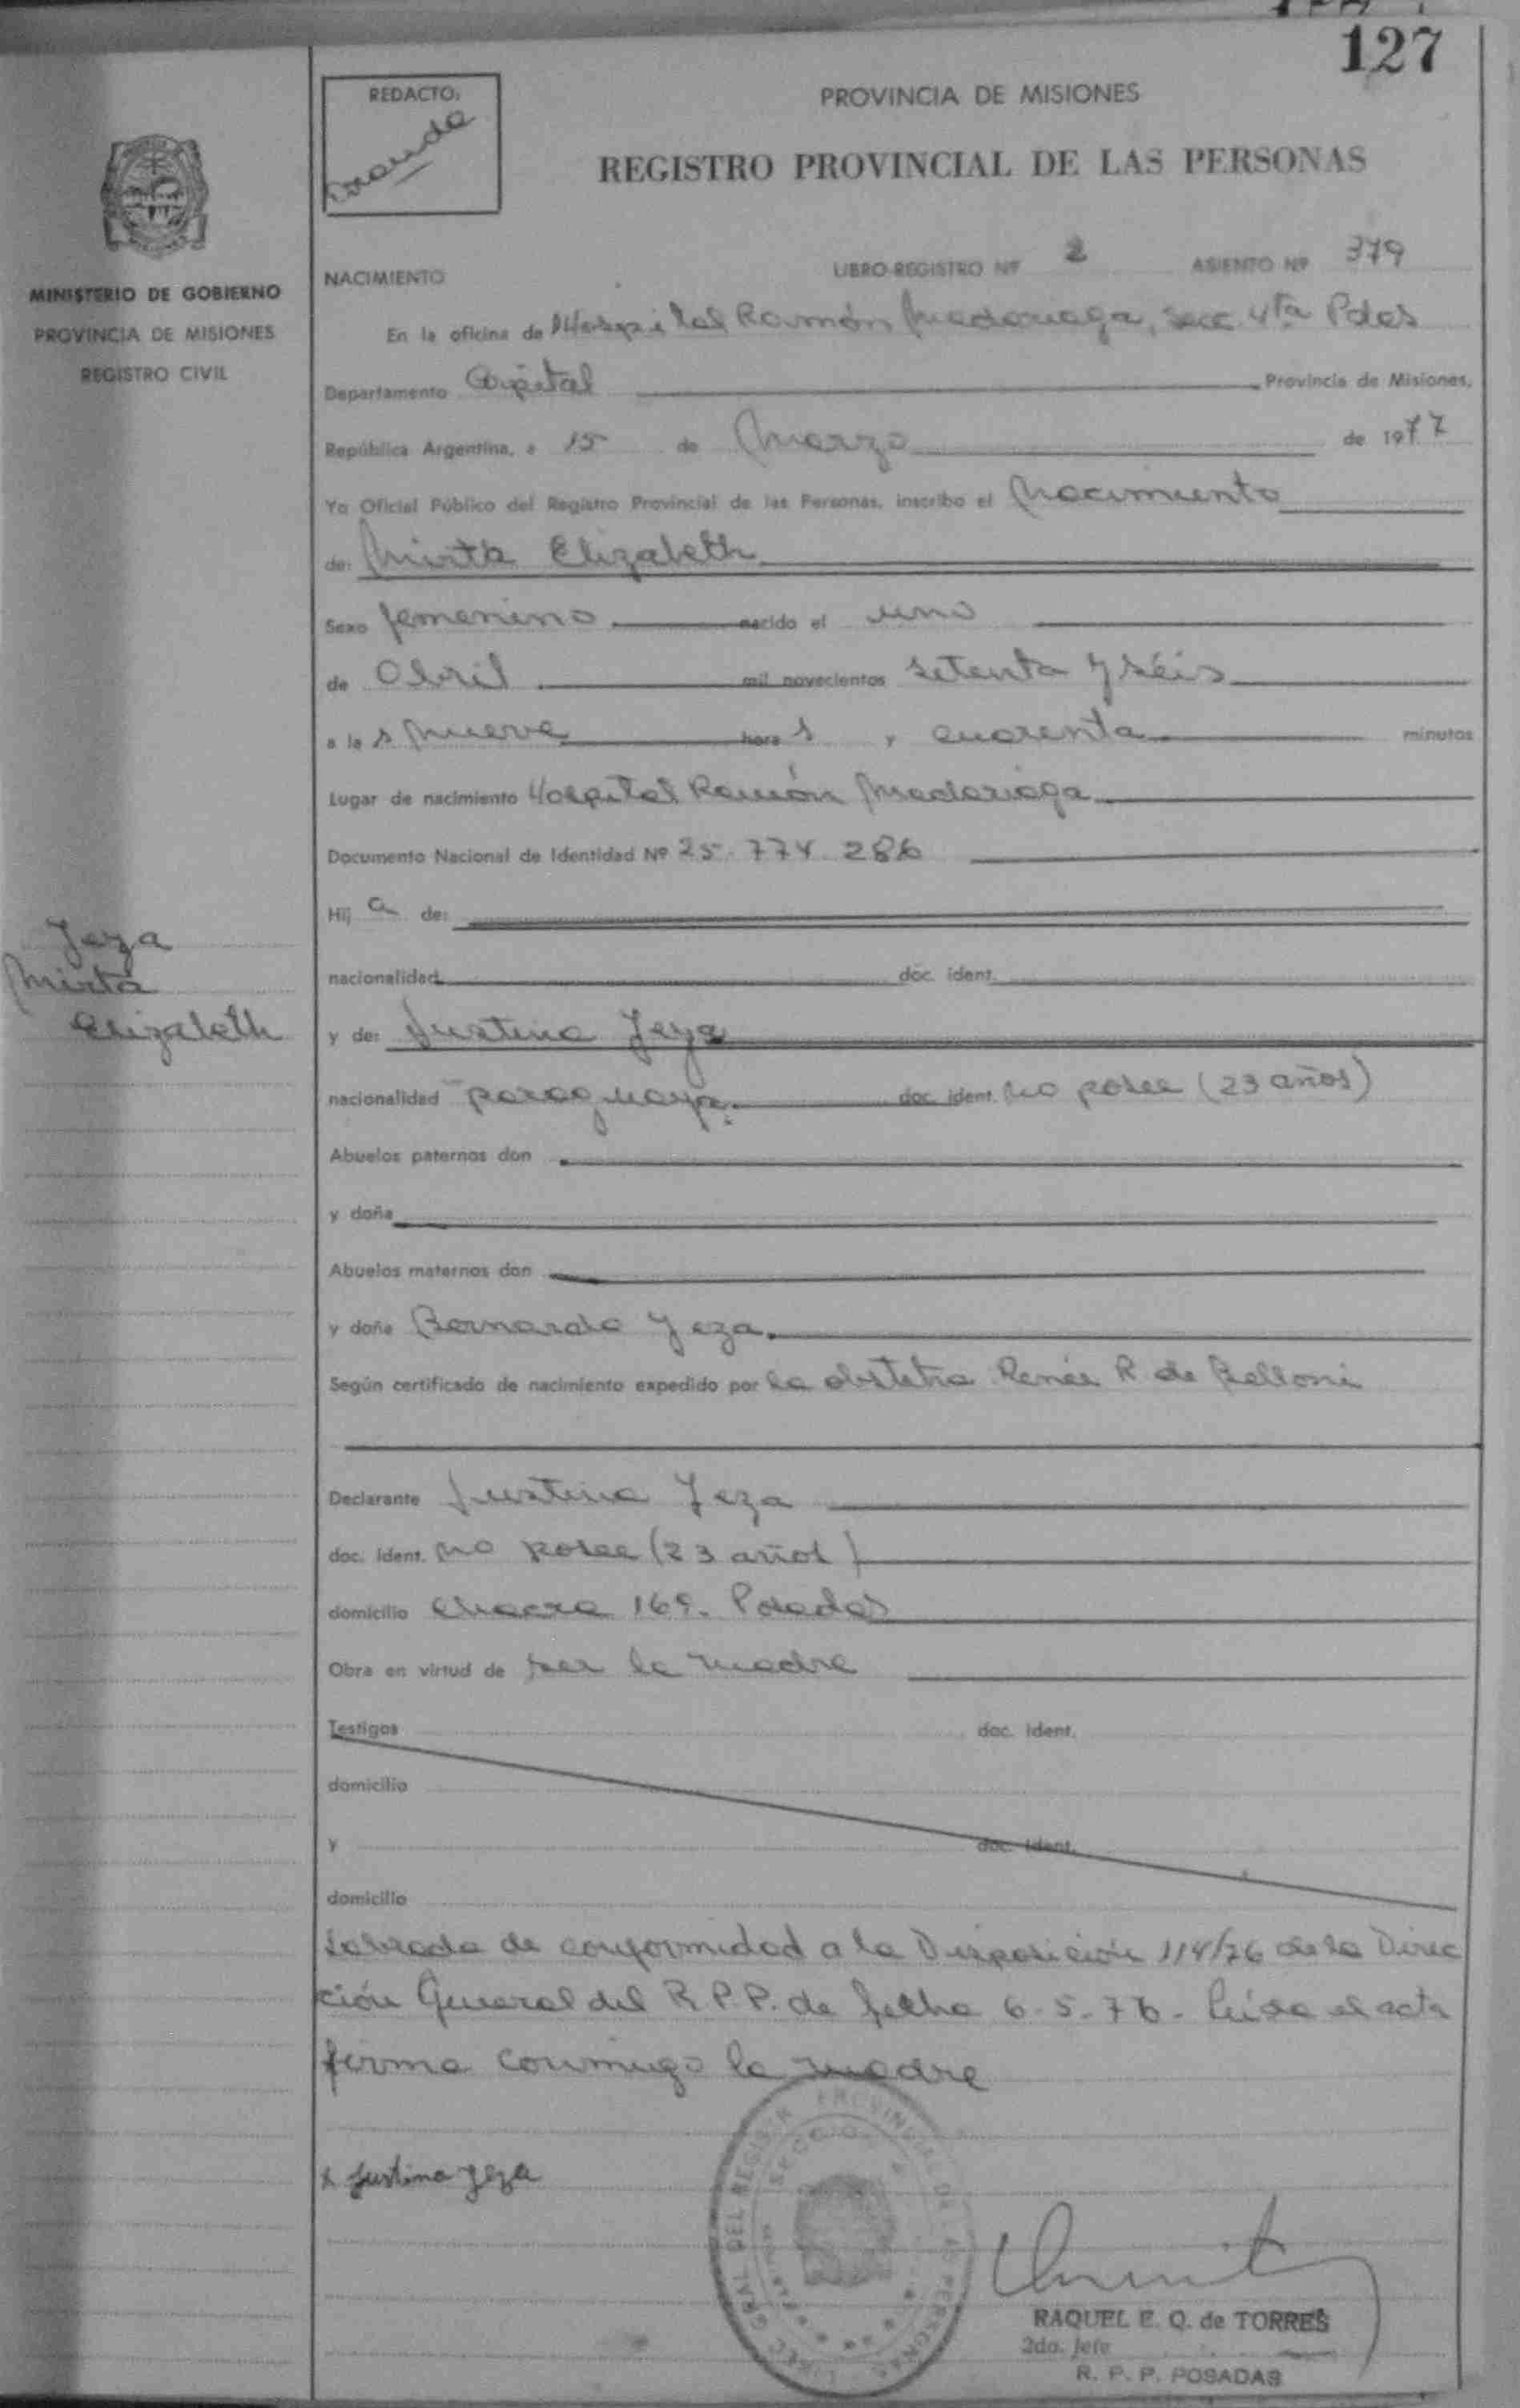 127
REDACTO:
PROVINCIA DE MISIONES
REGISTRO PROVINCIAL DE LAS PERSONAS
MINISTERIO DE GOBIERNO
PROVINCIA DE MISIONES
REGISTRO CIVIL
NACIMIENTO LIBRO-REGISTRO Nº 2 ASIENTO Nº 379
En la oficina de Hospital Ramón Madariaga, Secc 4ta Pdas
Departamento Capital Provincia de Misiones,
República Argentina, a 15 de Marzo de 1977
Yo Oficial Público del Registro Provincial de las Personas, inscribo el Nacimiento
de: Mirta Elizabeth
Sexo femenino nacido el uno
de Abril mil novecientos setenta y séis
a las nueve horas y cuarenta minutos
Lugar de nacimiento Hospital Ramón Madariaga
Documento Nacional de Identidad Nº 25.774.286
Hija de:
nacionalidad doc. ident.
Yeza
Mirta
Elizabeth
y de: Justina Yeza
nacionalidad paraguaya. doc. ident. No posee (23 años)
Abuelos paternos don
y doña
Abuelos maternos don
y doña Bernarda Yeza.
Según certificado de nacimiento expedido por la obstetra Renée R de Belloni
Declarante Justina Yeza
doc. ident. No posee (23 años)
domicilio Chacra 169. Posadas
Obra en virtud de ser la madre
Testigos doc. ident.
domicilio
y doc. ident.
domicilio
Labrada de conformidad a la Disposición 114/76 de la Direc
ción General del R.P.P. de fecha 6-5-76- leída el acta
firma conmigo la madre
x Justina Yeza
RAQUEL E. Q. de TORRES
2da. Jefe
R. P. P. POSADAS